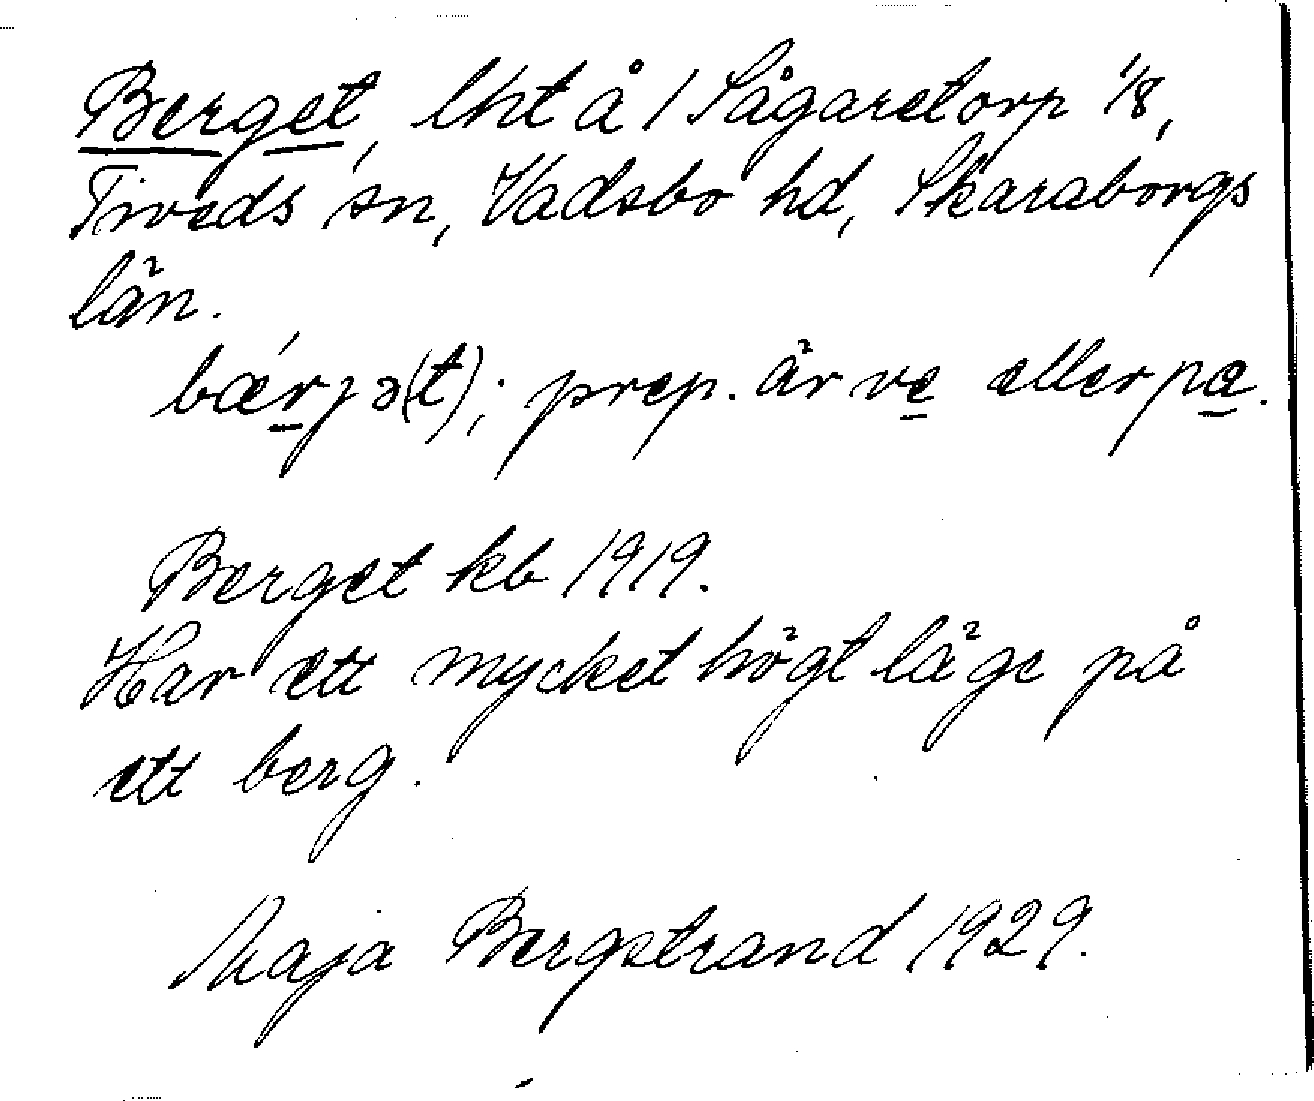 Berget, lht å 1 Sågaretorp 1/8,
Tiveds sn, Vadsbo hd, Skaraborgs
län.
bærjə(t); prep. är ve eller pa.
Berget kb 1919.
Har ett mycket högt läge på
ett berg.
Maja Bergstrand 1929.